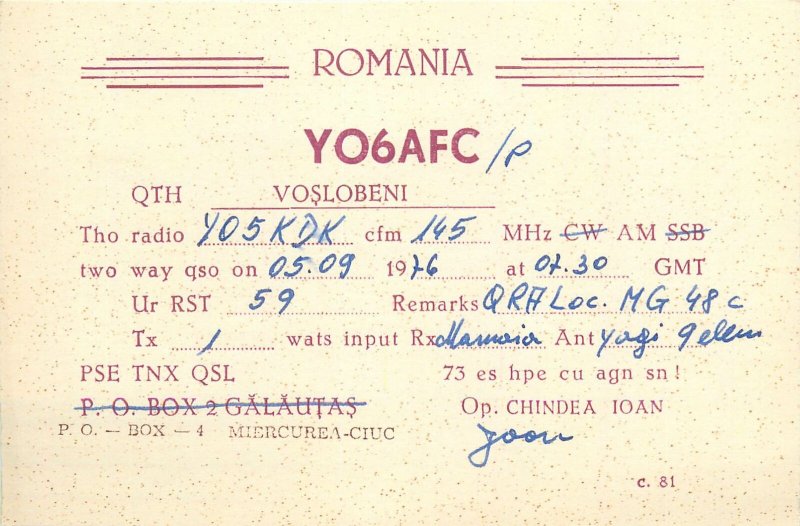 ROMANIA
YO6AFC /P
QTH VOȘLOBENI
Tho radio YO5KDK cfm 145 MHz CW AM SSB
two way qso on 05.09 1976 at 07.30 GMT
Ur RST 59 Remarks QRA Loc. MG 48 c
Tx 1 wats input Rx Mamaia Ant yagi 9 elem
PSE TNX QSL 73 es hpe cu agn sn!
P. O. BOX 2 GĂLĂUȚAȘ Op. CHINDEA IOAN
P. O. — BOX — 4 MIERCUREA-CIUC
c. 81